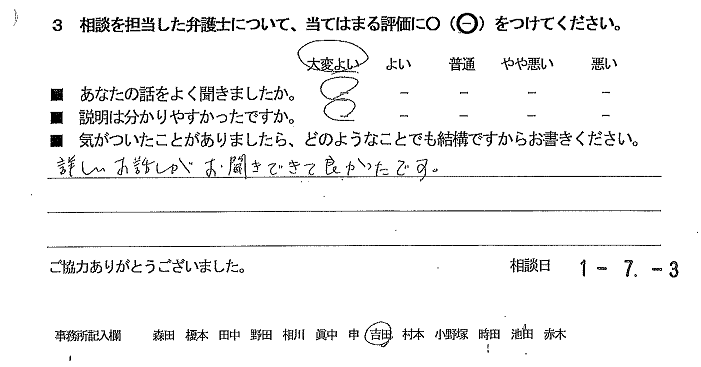 3 相談を担当した弁護士について、当てはまる評価に○（⊖）をつけてください。
大変よい よい 普通 やや悪い 悪い
■ あなたの話をよく聞きましたか。 － － － － －
■ 説明は分かりやすかったですか。 － － － － －
■ 気がついたことがありましたら、どのようなことでも結構ですからお書きください。
詳しいお話しがお聞きできて良かったです。
ご協力ありがとうございました。 相談日 1－7.－3
事務所記入欄 森田 榎本 田中 野田 相川 眞中 申 吉田 村本 小野塚 時田 池田 赤木